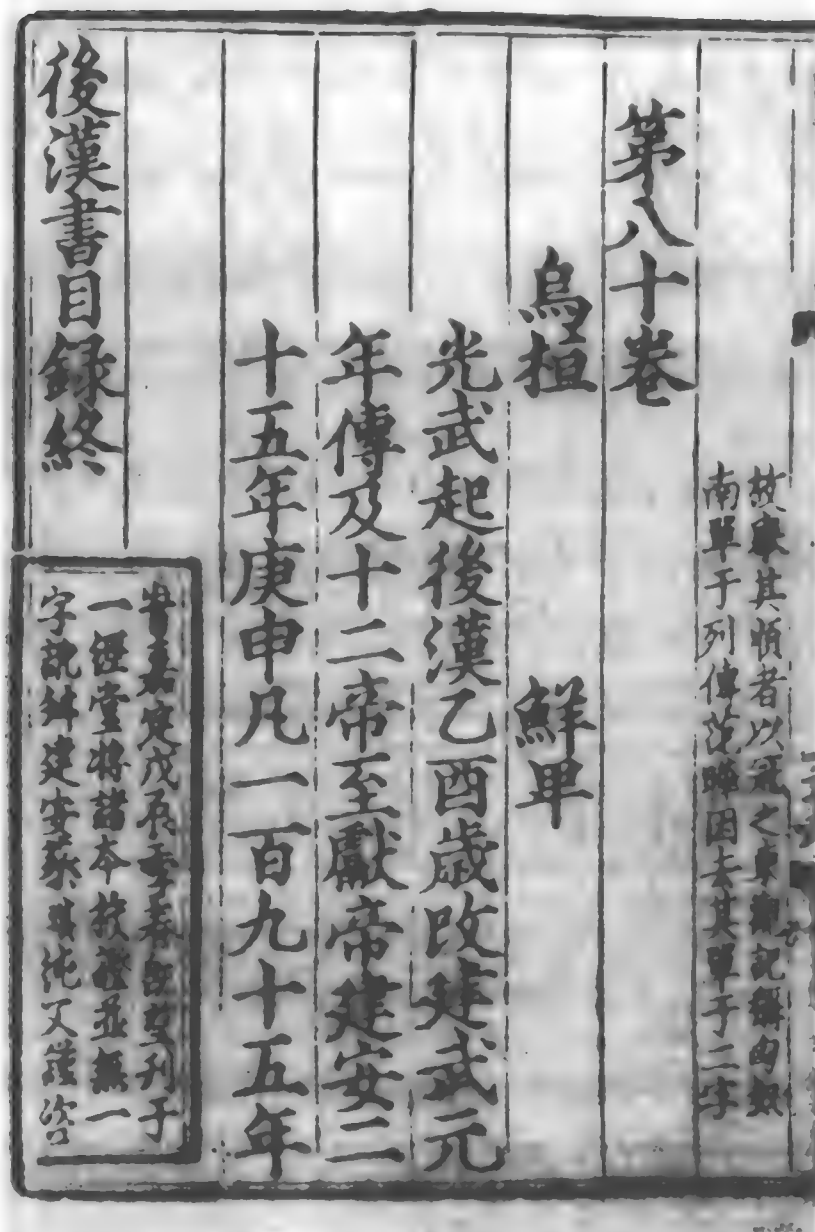 故舉其順者以冠之東觀記稱匈奴
南單于列傳范曄因去其單于二字
第八十卷
烏桓　鮮卑
光武起後漢乙酉歲改建武元
年傳及十二帝至獻帝建安二
十五年庚申凡一百九十五年
後漢書目録終
嘉定戊辰季春刊于
一經堂將諸本校證並無一
字訛舛建安蔡琪純父謹咨